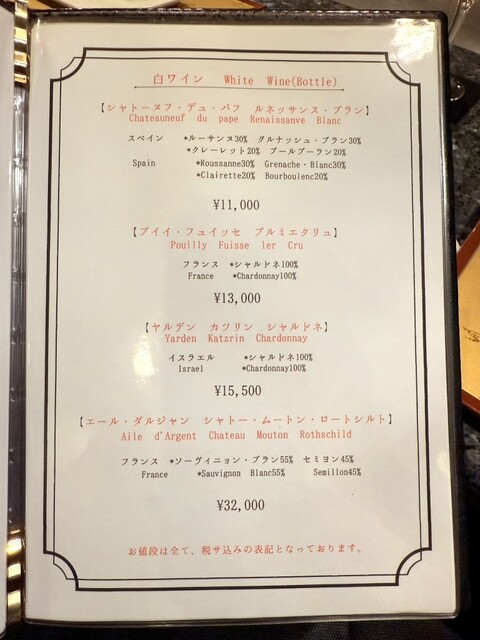 白ワイン White Wine(Bottle)
【シャトーヌフ・デュ・パフ ルネッサンス・ブラン】
Chateauneuf du pape Renaissanve Blanc
スペイン *ルーサンヌ30% グルナッシュ・ブラン30%
*クレーレット20% ブールブーラン20%
Spain *Roussanne30% Grenache・Blanc30%
*Clairette20% Bourboulenc20%
¥11,000
【プイイ・フュイッセ プルミエクリュ】
Pouilly Fuisse 1er Cru
フランス *シャルドネ100%
France *Chardonnay100%
¥13,000
【ヤルデン カツリン シャルドネ】
Yarden Katzrin Chardonnay
イスラエル *シャルドネ100%
Israel *Chardonnay100%
¥15,500
【エール・ダルジャン シャトー・ムートン・ロートシルト】
Aile d'Argent Chateau Mouton Rothschild
フランス *ソーヴィニョン・ブラン55% セミヨン45%
France *Sauvignon Blanc55% Semillon45%
¥32,000
お値段は全て、税サ込みの表記となっております。